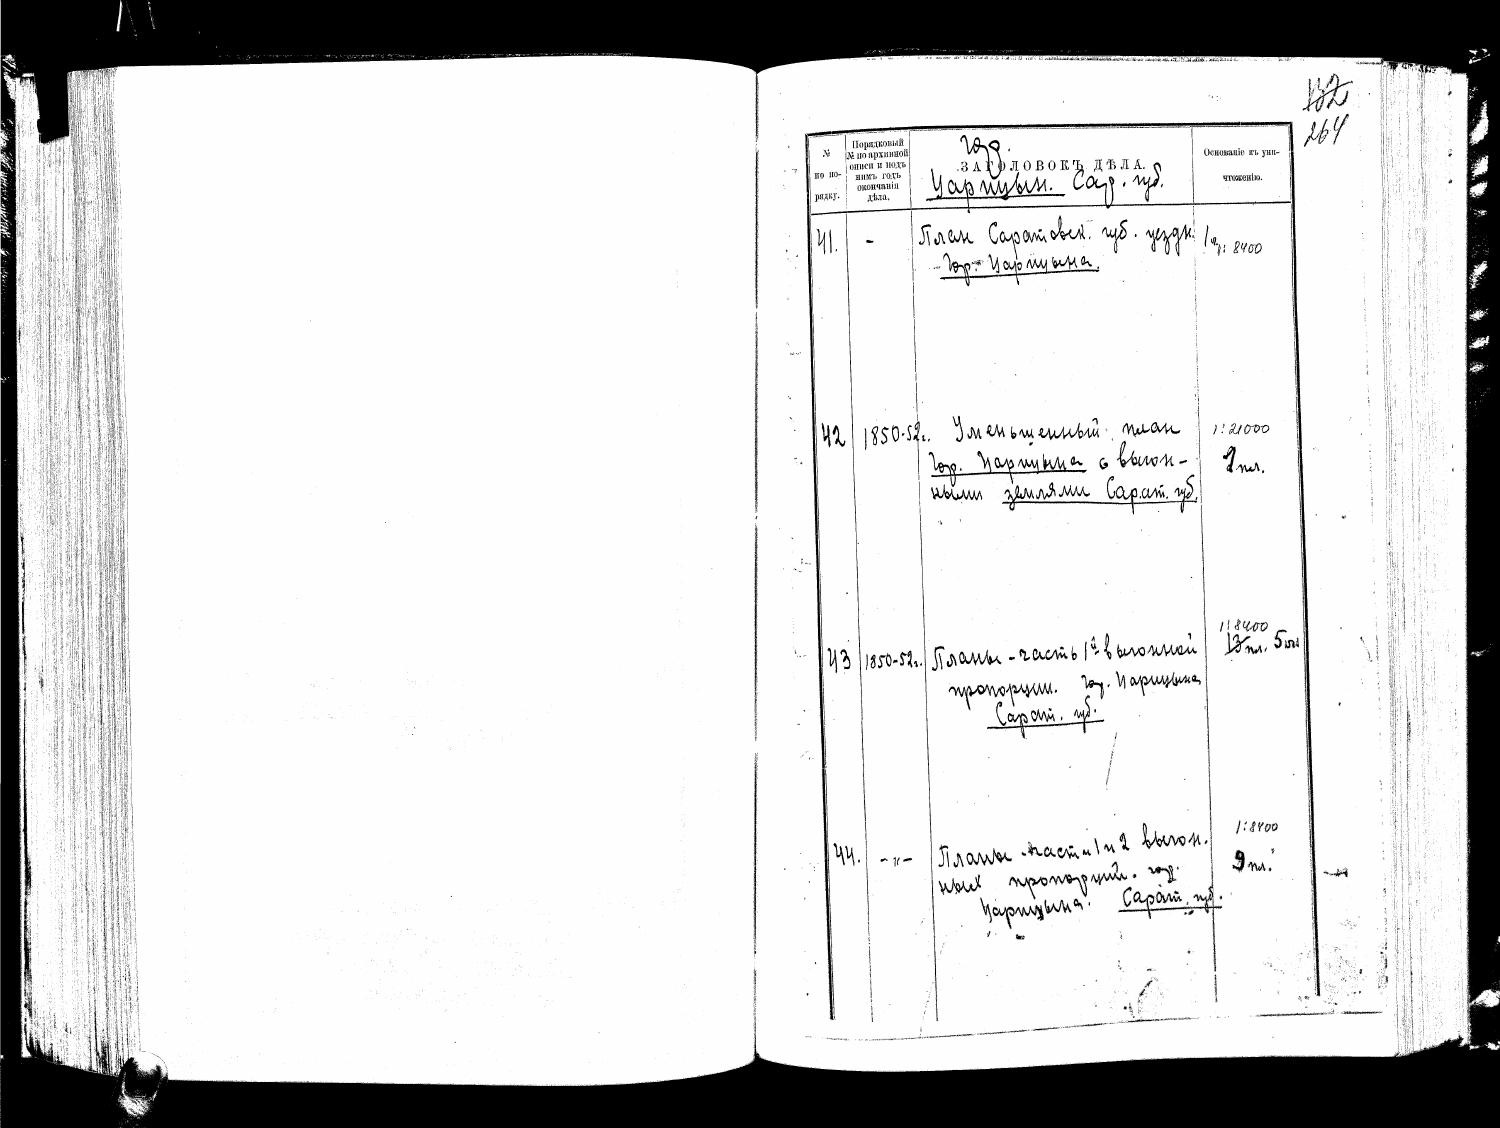 132
264
№
по по-
рядку.
Порядковый
№ по архивной
описи и подъ
нимъ годъ
окончанія
дѣла.
ЗАГОЛОВОКЪ ДѢЛА.
Основаніе къ уни-
чтоженію.
Гор.
Царицын. Сар. губ.
41. - План Саратовск. губ. уездн. 1: 8400
Гор. Царицына.
42 1850-52г. Уменьшенный план 1:21000
Гор. Царицына с выгон- 2 пл.
ными землями Сарат. губ.
1:8400
43 1850-52г. Планы - часть 1й выгонной 13 пл. 5
пропорции. гор. Царицына
Сарат. губ.
1:8400
44. -"- Планы части 1 и 2 выгон- 9 пл.
ных пропорций. гор.
Царицына. Сарат. губ.